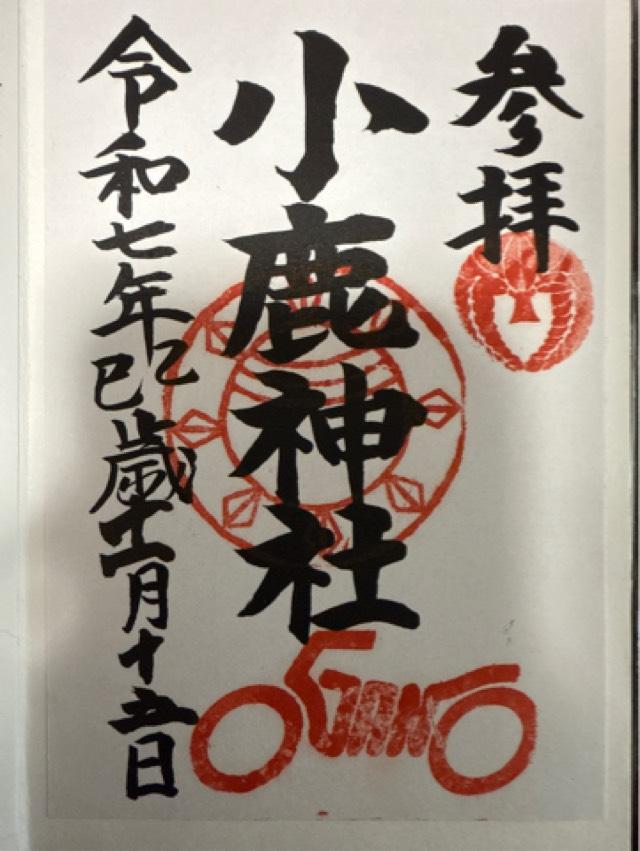 参拝
小鹿神社
令和七年乙巳歳十一月十五日